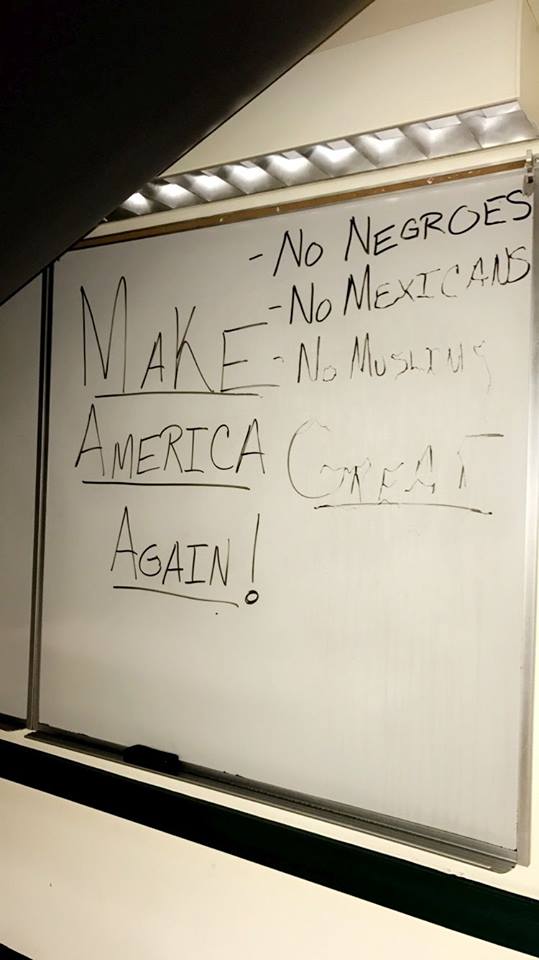 - No NEGROES
- No MEXICANS
- No MUSLIMS
MAKE
AMERICA GREAT
AGAIN!